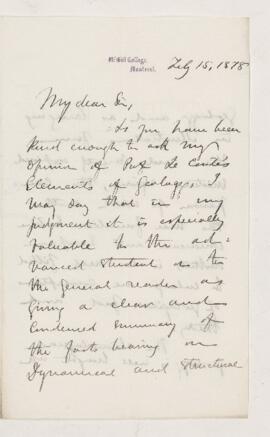 McGill College,
Montreal.
Feby 15, 1878
My dear Sir,
As you have been
kind enough to ask my
opinion of Prof Le Conte's
Elements of Geology, I
may say that in my
judgment it is especially
valuable to the ad-
vanced student or to
the general reader as
giving a clear and
condensed summary of
the facts bearing on
Dynamical and Structural